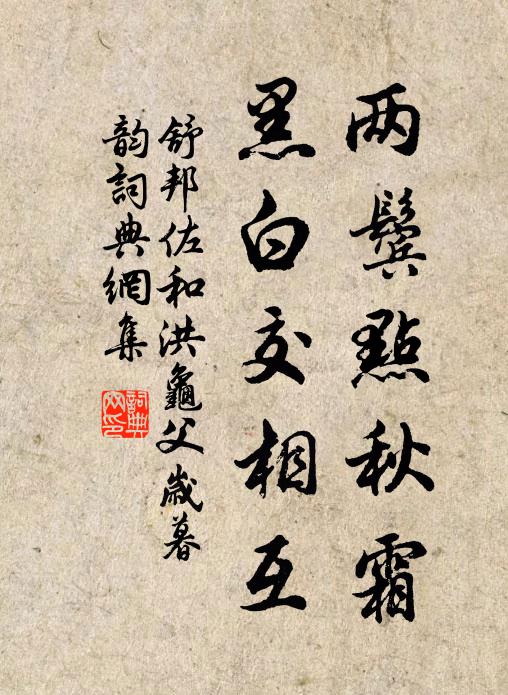 两鬓點秋霜
黑白交相互
舒邦佐和洪龜父歲暮
韵詞典網集
詞典
网印